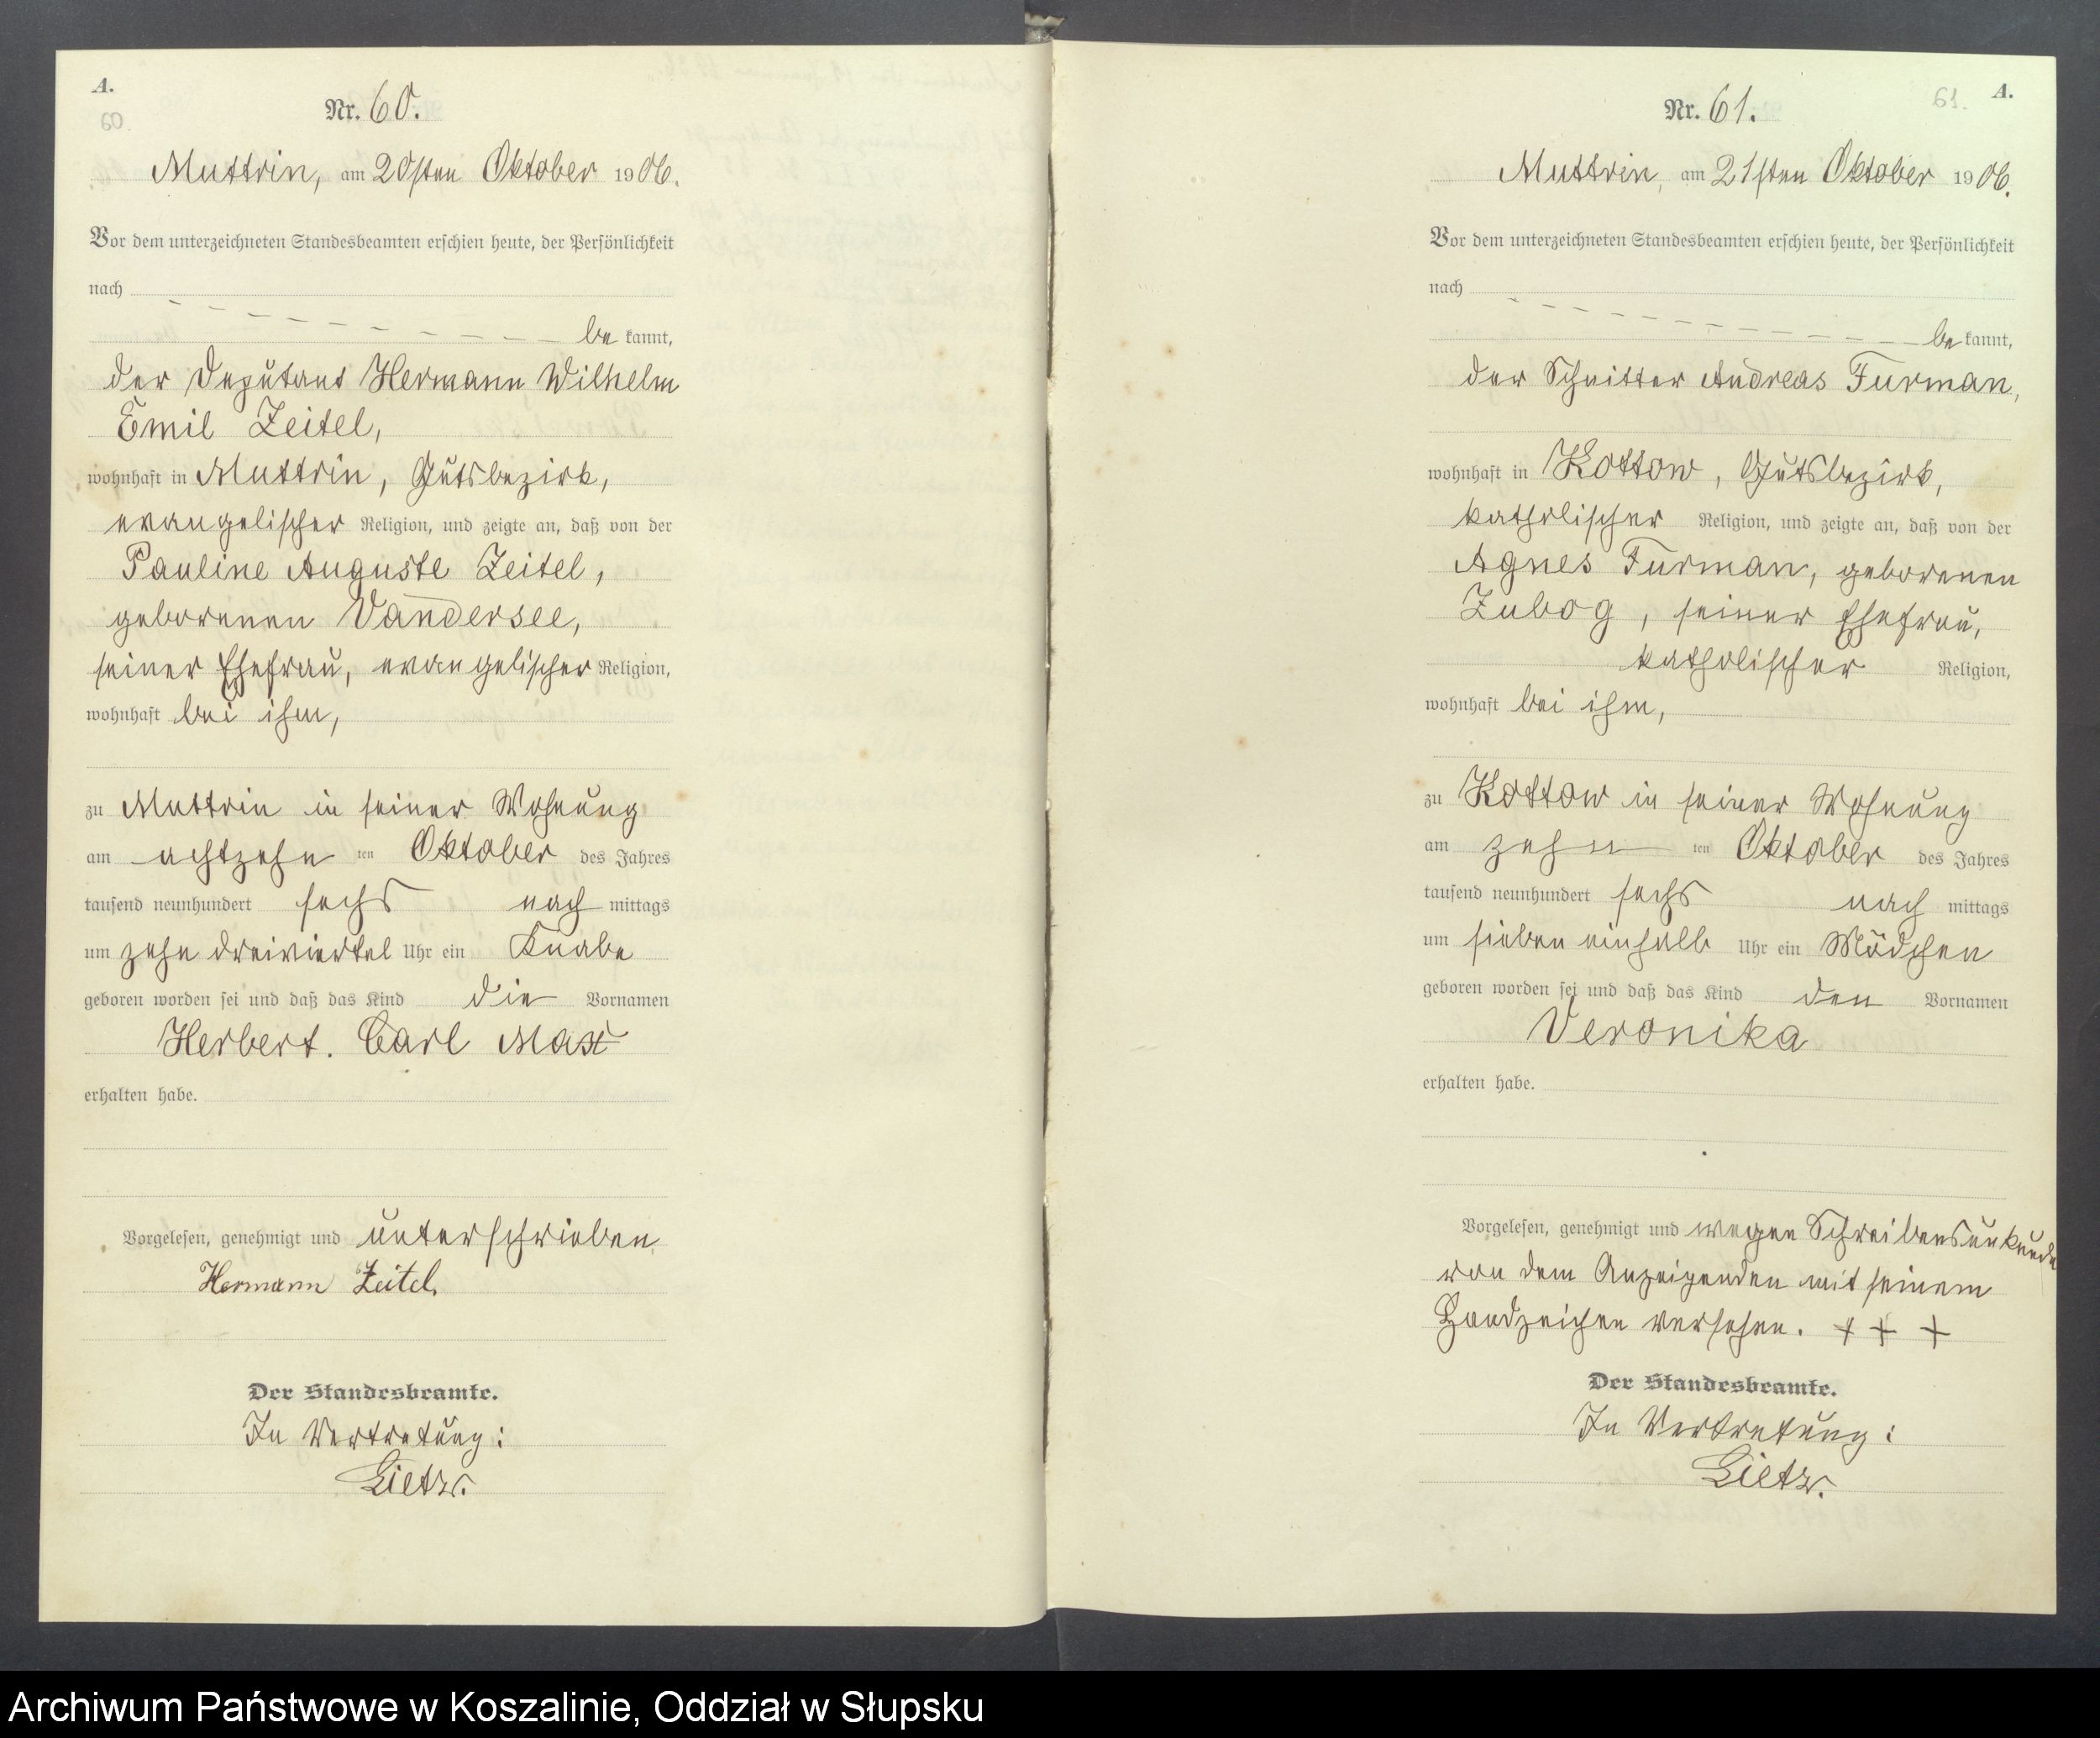 A.
60.
Nr. 60.
Muttrin, am 20sten Oktober 1906.
Vor dem unterzeichneten Standesbeamten erschien heute, der Persönlichkeit
nach
be kannt,
der Deputant Hermann Wilhelm
Emil Zeitel,
wohnhaft in Muttrin, Gutsbezirk,
evangelischer Religion, und zeigte an, daß von der
Pauline Auguste Zeitel,
geborenen Vandersee,
seiner Ehefrau, evangelischer Religion,
wohnhaft bei ihm,
zu Muttrin in seiner Wohnung
am achtzehn ten Oktober des Jahres
tausend neunhundert sechs nach mittags
um zehn dreiviertel Uhr ein Knabe
geboren worden sei und daß das Kind die Vornamen
Herbert. Carl Max
erhalten habe.
Vorgelesen, genehmigt und unterschrieben
Hermann Zeitel.
Der Standesbeamte.
In Vertretung:
Lietz.
61. A.
Nr. 61.
Muttrin, am 21sten Oktober 1906.
Vor dem unterzeichneten Standesbeamten erschien heute, der Persönlichkeit
nach
be kannt,
der Schnitter Andreas Furman,
wohnhaft in Kottow, Gutsbezirk,
katholischer Religion, und zeigte an, daß von der
Agnes Furman, geborenen
Zubog, seiner Ehefrau,
katholischer Religion,
wohnhaft bei ihm,
zu Kottow in seiner Wohnung
am zehn ten Oktober des Jahres
tausend neunhundert sechs nach mittags
um sieben einhalb Uhr ein Mädchen
geboren worden sei und daß das Kind den Vornamen
Veronika
erhalten habe.
Vorgelesen, genehmigt und wegen Schreibensunkunde
von dem Anzeigenden mit seinem
Handzeichen versehen. + + +
Der Standesbeamte.
In Vertretung:
Lietz.
Archiwum Państwowe w Koszalinie, Oddział w Słupsku